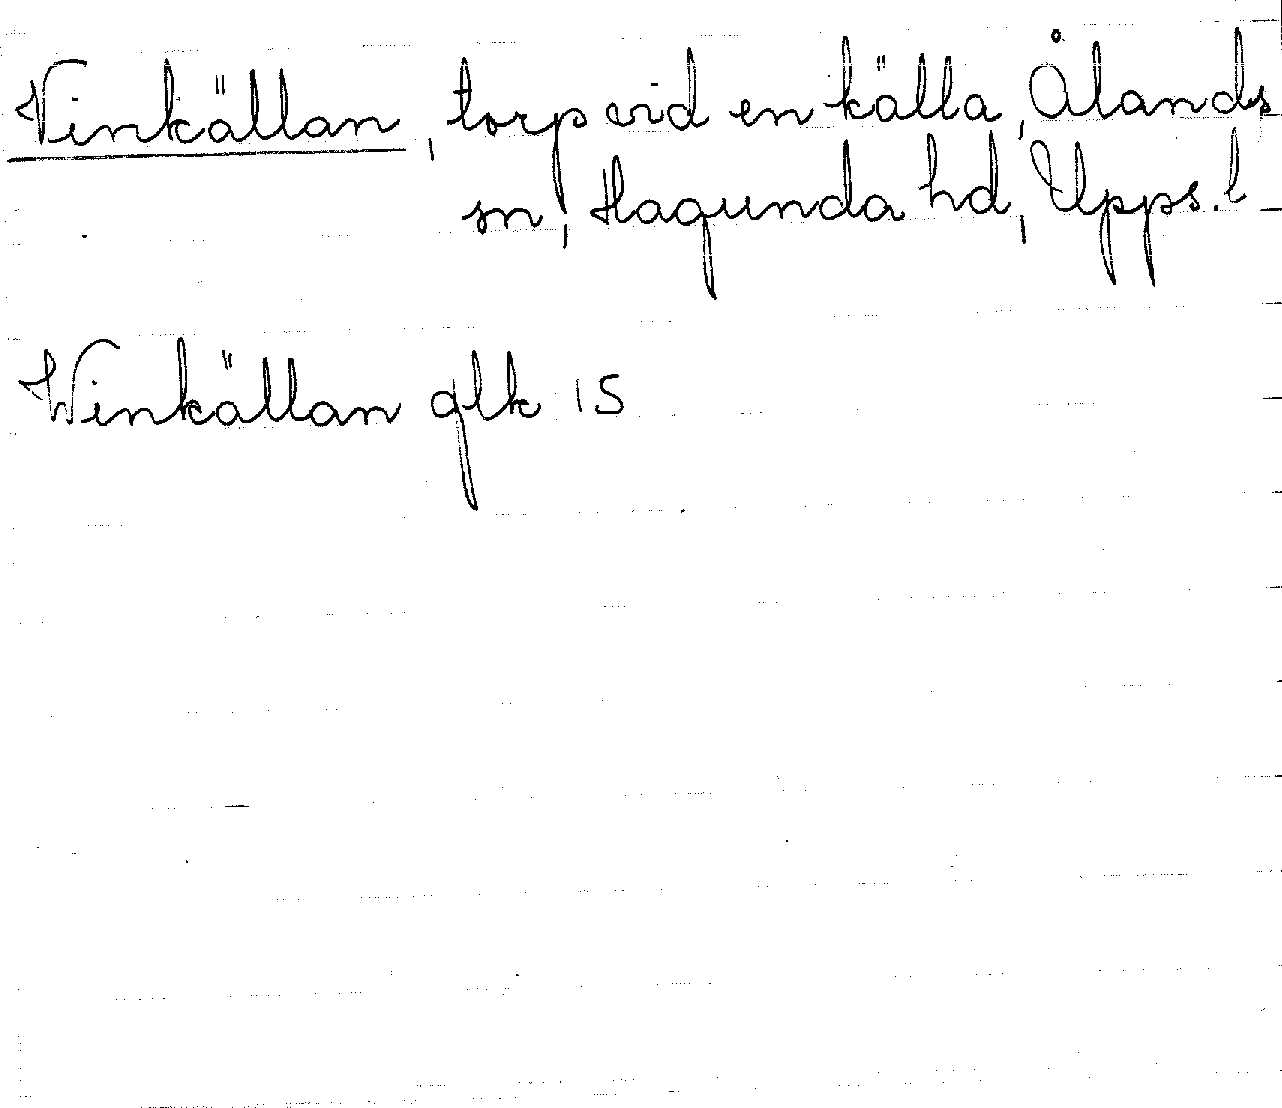 Vinkällan, torp vid en källa, Ålands
sn, Hagunda hd, Upps. l
Winkällan glk 15